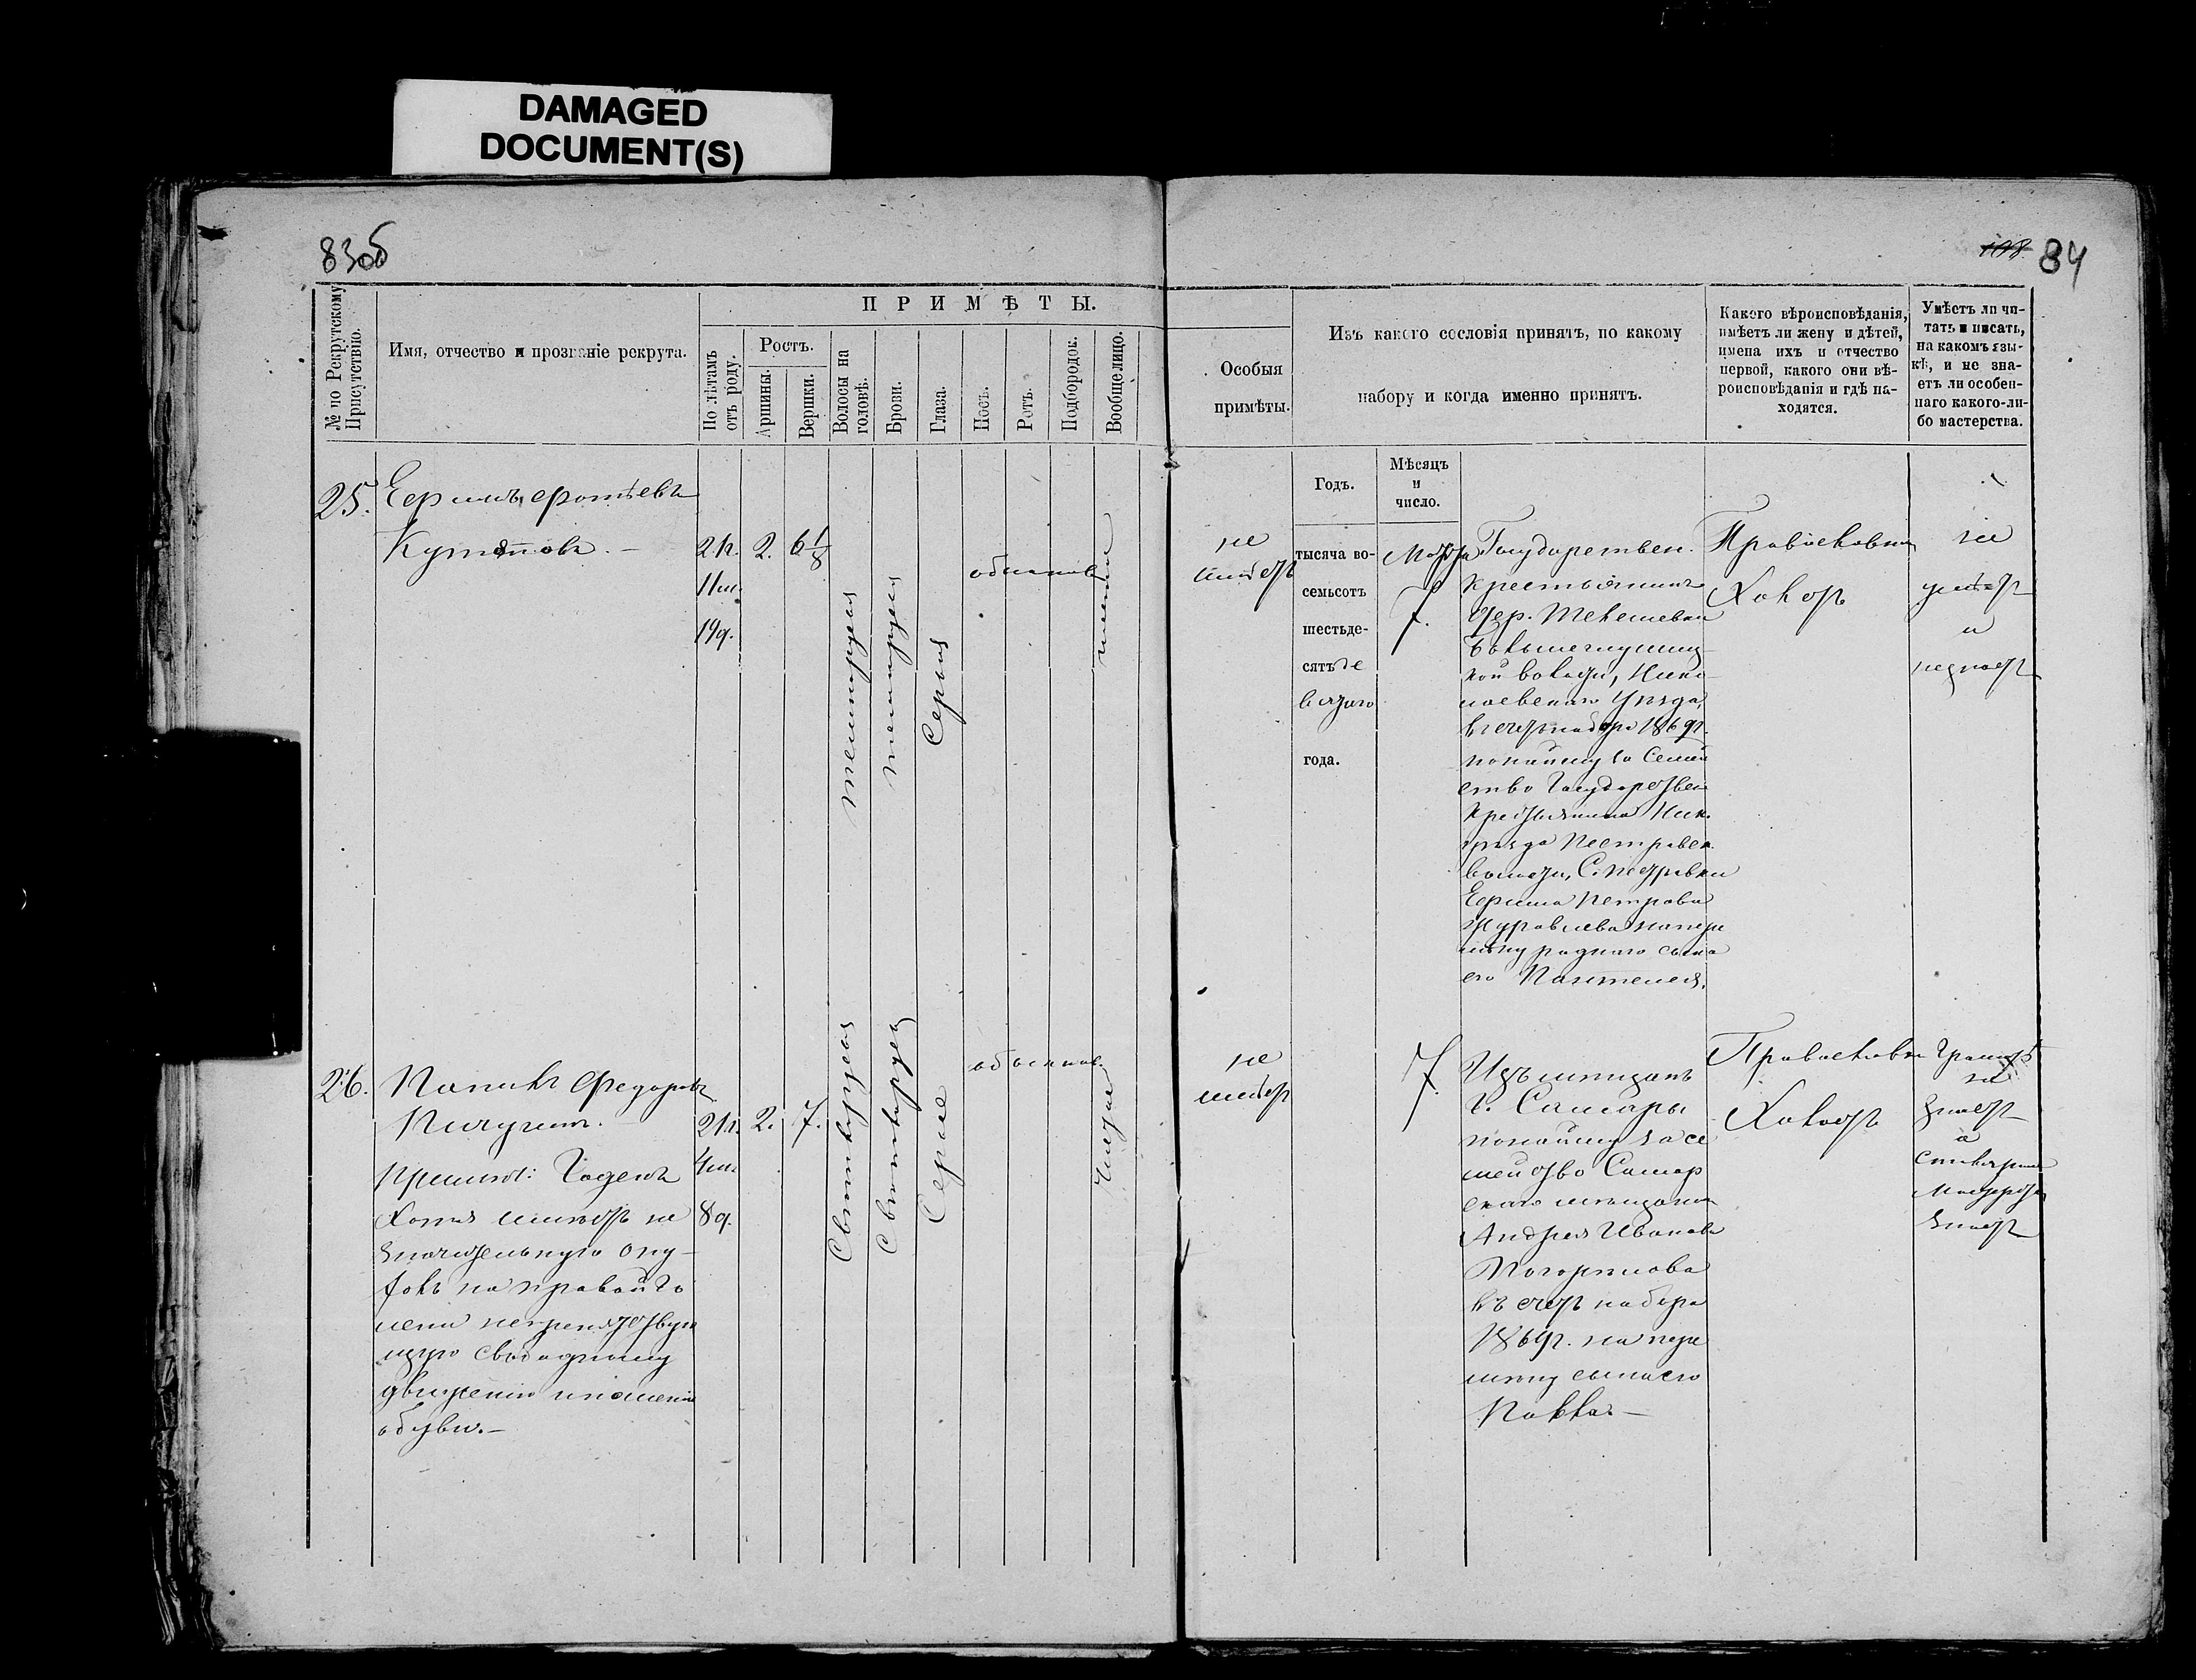 DAMAGED
DOCUMENT(S)
83об
108. 84
№ по Рекрутскому Присутствію.
Имя, отчество и прозваніе рекрута.
ПРИМѢТЫ.
По лѣтамъ отъ роду.
Ростъ.
Аршины.
Вершки.
Волосы на головѣ.
Брови.
Глаза.
Носъ.
Ротъ.
Подбородок.
Вообще лицо.
Особыя
примѣты.
Изъ какого сословія принятъ, по какому
набору и когда именно принятъ.
Какого вѣроисповѣданія,
имѣетъ ли жену и дѣтей,
имена ихъ и отчество
первой, какого они вѣ-
роисповѣданія и гдѣ на-
ходятся.
Умѣетъ ли чи-
тать и писать,
на какомъ язы-
кѣ, и не зна-
етъ ли особен-
наго какого-ли-
бо мастерства.
Годъ.
Мѣсяцъ
и
число.
25.
Ефимъ
21г. 2. 6 1/8
11м.
19д.
темнорусыя
темнорусыя
Серыя
обыкнов
не
имѣетъ
тысяча во-
семьсотъ
шестьде-
сятъ де
вятаго
года.
Марта
7.
Государствен.
крестьянинъ
дер.
волости, Нико
лаевскаго Уѣзда,
въ счетъ набора 1869г.
по найму за Семей
ство Государствен
Крестьянина Ник.
уѣзда Пестравск.
волости, С. Пестравки
Ефима Петрова
Журавлева на пере
мѣну роднаго сына
его Пантелея.
Православн
Холостъ
не
умѣетъ
и
не знаетъ
26. Федоровъ
Пичугинъ.
21г. 2. 7.
4м.
8д.
Примѣч: Годенъ
Хотя имѣетъ не
значительную опу
холь на правой го
лени не препятству
ющую свободному
движенію и ношенію
обуви.—
Светлорусыя
Светлорусыя
Серые
обыкнов.
Чистое
не
имѣетъ
7.
Изъ мѣщанъ
г. Самары
по найму за се
мейство Самар
скаго мѣщанина
Андрея Иванова
въ счетъ набора
1869г. на пере
мѣну сына его
Павла.—
Православн
Холостъ
Грамотѣ
не
знаетъ
а
столярное
Мастерство
знаетъ